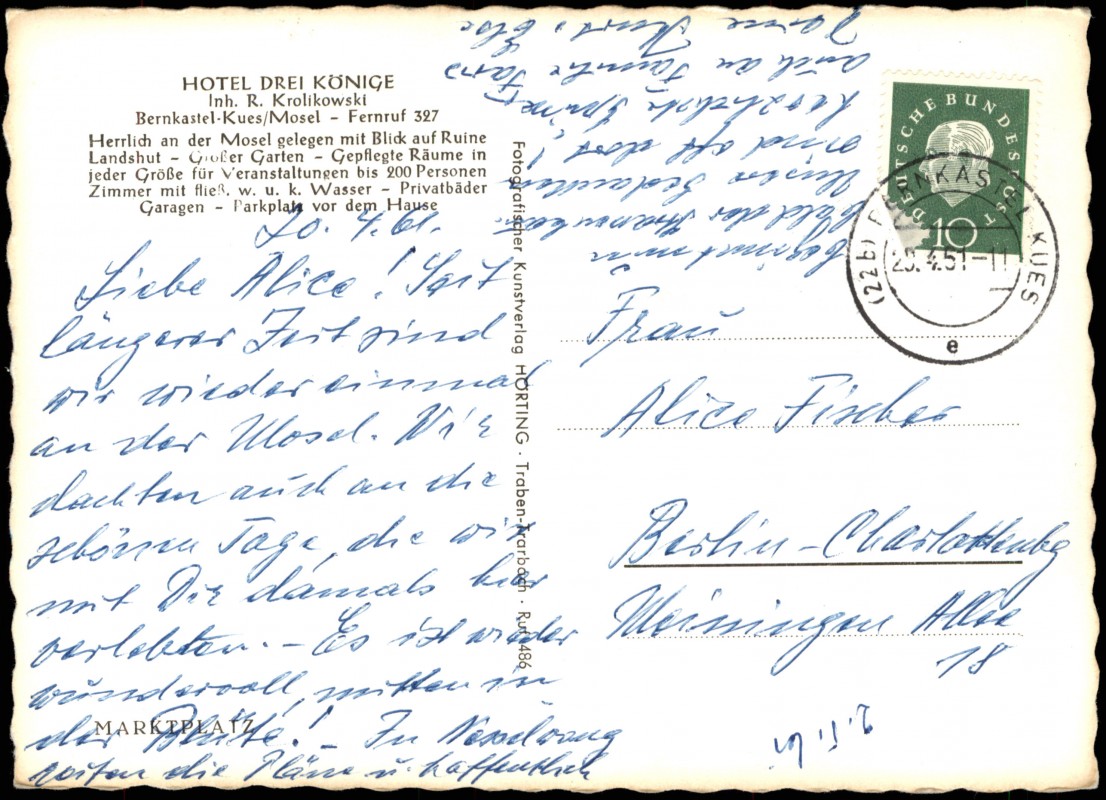 HOTEL DREI KÖNIGE
Inh. R. Krolikowski
Bernkastel-Kues/Mosel – Fernruf 327
Herrlich an der Mosel gelegen mit Blick auf Ruine
Landshut – Großer Garten – Gepflegte Räume in
jeder Größe für Veranstaltungen bis 200 Personen
Zimmer mit fließ. w. u. k. Wasser – Privatbäder
Garagen – Parkplatz vor dem Hause
20.4.61.
Liebe Alice! Seit
längerer Zeit sind
wir wieder einmal
an der Mosel. Wir
dachten auch an die
schönen Tage, die wir
mit Dir damals hier
verlebten. – Es ist wieder
wundervoll, mitten in
der Blüte! – In
reifen die Pläne u. hoffentlich
beginnt
bald der
Unsere Gedanken
sind oft dort!
Herzlichste Grüße,
auch an Familie
Deine
MARKTPLATZ
Fotografischer Kunstverlag HORTING · Traben-Trarbach · Ruf 486
DEUTSCHE BUNDESPOST
10
(22b) BERNKASTEL-KUES
20.4.61-11
e
Frau
Alice Fischer
Berlin-Charlottenbg
Meiningen Allee
18
2.5.61